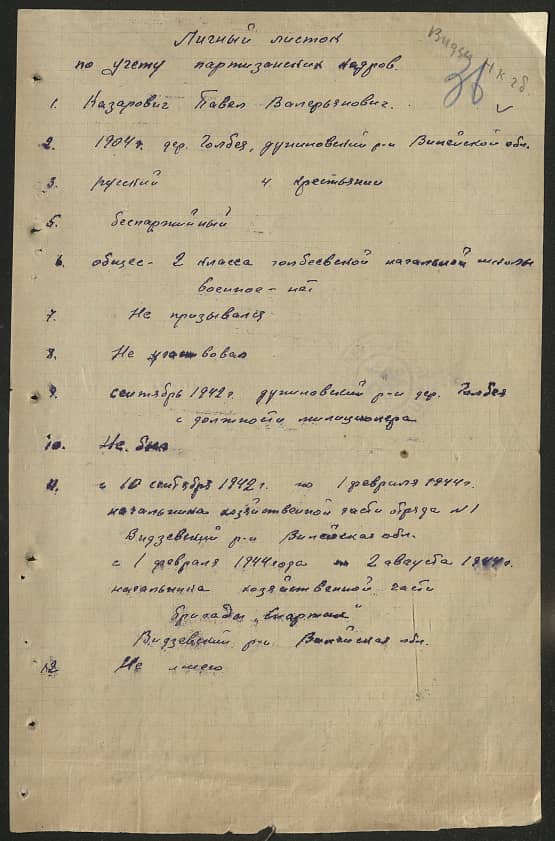 Видзы
36
Личный листок
по учету партизанских кадров.
1. Казарович Павел Валерьянович.
2. 1904 г. дер. Голбея, дуниловский р-н Вилейской обл.
3. русский 4 крестьянин
5. беспартийный
6. общее - 2 класса голбеевской начальной школы
военное - нет
7. Не призывался
8. Не участвовал
9. сентябрь 1942 г. дуниловский р-н дер. Голбея
с должности милиционера
10. Не был
11. с 10 сентября 1942 г. по 1 февраля 1944 г.
начальника хозяйственной части отряда N 1
Видзевский р-н Вилейская обл.
с 1 февраля 1944 года по 2 августа 1944 г.
начальника хозяйственной части
бригады „Спартак"
Видзевский р-н Вилейская обл.
12 Не имею